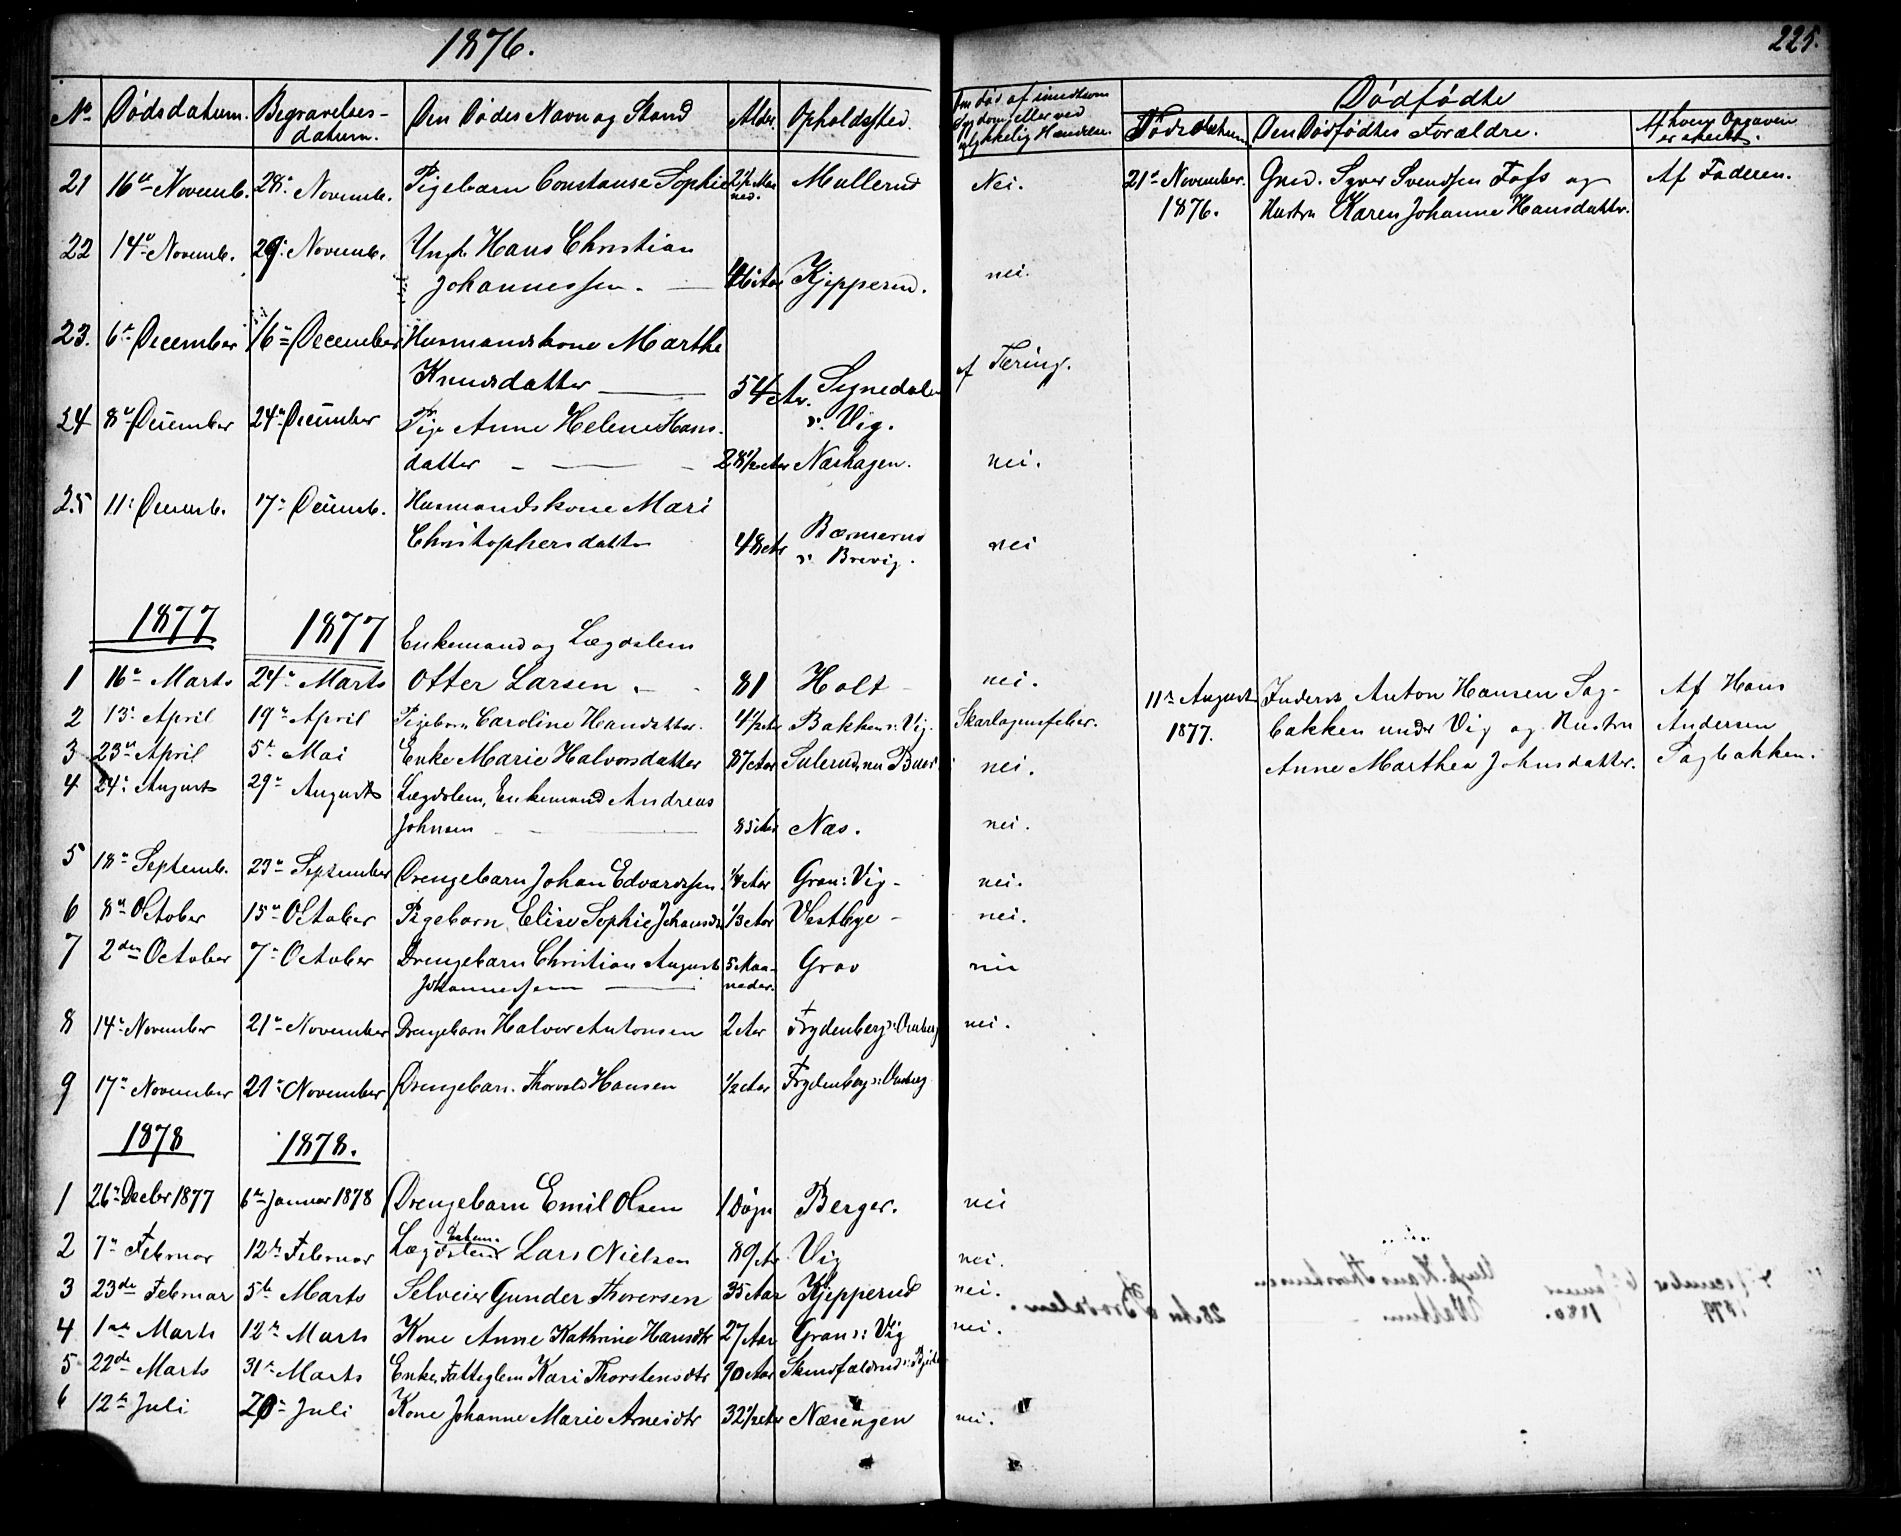 1876.
225.
No Dødsdatum. Begravelses-datum. Den Dødes Navn og Stand Alder Opholdssted.
Om død af smitsom Sygdom eller ved ulykkelig Hændelse.
Dødfødte
Dødsdatum Den Dødfødtes Forældre. Af hvem Opgaven er skeet.
21 16de Novemb. 28de Novemb. Pigebarn Constanse Sophie 2½ Maaned. Mellerud Nei.
21de November. 1876. Gmd. Syver Svendsen Foss og Af Faderen.
Hustru Karen Johanne Hansdatter.
22 14de Novemb. 29de Novemb. Ungk. Hans Christian
Johannessen. Aar Kjepperud. nei.
23. 6te December 16de December Husmandskone Marthe
Knudsdatter 54 Ar. Signedalen af Tæring.
u. Vig.
24 8de December 24de December Pige Anne Helene Hans-
datter 28½ Aar Næshagen. nei.
25 11te Decemb. 17de Decemb. Husmandskone Mari
Christophersdatter 48 Ar Bærnserud nei
u. Brevig.
1877 1877 Enkemand og Lægdslem
1 16de Marts 24de Marts Otter Larsen. 81 Holt nei.
2 13de April 19de April Pigebarn Caroline Hansdatter. 4½ Aar Bakken u. Vig. Skarlagensfeber.
3 23de April 5te Mai Enke Marie Halvorsdatter 87 Aar Sulerud nei.
11te August 1877. Inderst Anton Hansen Sag- Af Hans
bakken under Vig og Hustru Andersen
Anne Marthea Johnsdatter. Sagbakken.
4 24de August 29de August Lægdslem, Enkemand Andreas
Johnsen 85 Aar Næs. nei.
5 18de Septemb. 23de September Drengebarn Johan Edvardsen. ¼ Aar Gran: Vig nei.
6 8de October 15de October Pigebarn Elise Sophie Johansdr ⅓ Aar Vestbye nei.
7 2den October 7de October Drengebarn Christian August 5 Maa- Grav nei
Johannessen neder.
8 14de November 21de November Drengebarn Halvor Antonsen 2 Aar Frydenberg nei.
9 17de November 21de November Drengebarn. Thorvald Hansen ½ Aar Frydenberg
1878 1878.
1 26de Decbr 1877 6te Januar 1878 Drengebarn Emil Olsen 1 Døgn Berger. nei
2 7de Februar 12te Februar Lægdslem Enkem. Lars Nielsen 89 Ar Vig nei.
3 23de Februar 5te Marts Selveier Gunder Thoresen 35 Aar Kjepperud nei.
4 1ste Marts 12te Marts Kone Anne Kathrine Hansdtr 27 Aar Gran u: Vig nei.
5 22de Marts 31te Marts Enke, Fattiglem Kari Thorstensdtr 90 Aar
6 12te Juli 20de Juli Kone Johanne Marie Arnesdtr 32½ Ar Næsengen nei.